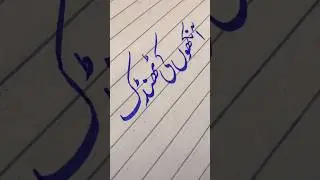 آنکھوں کی ٹھنڈک